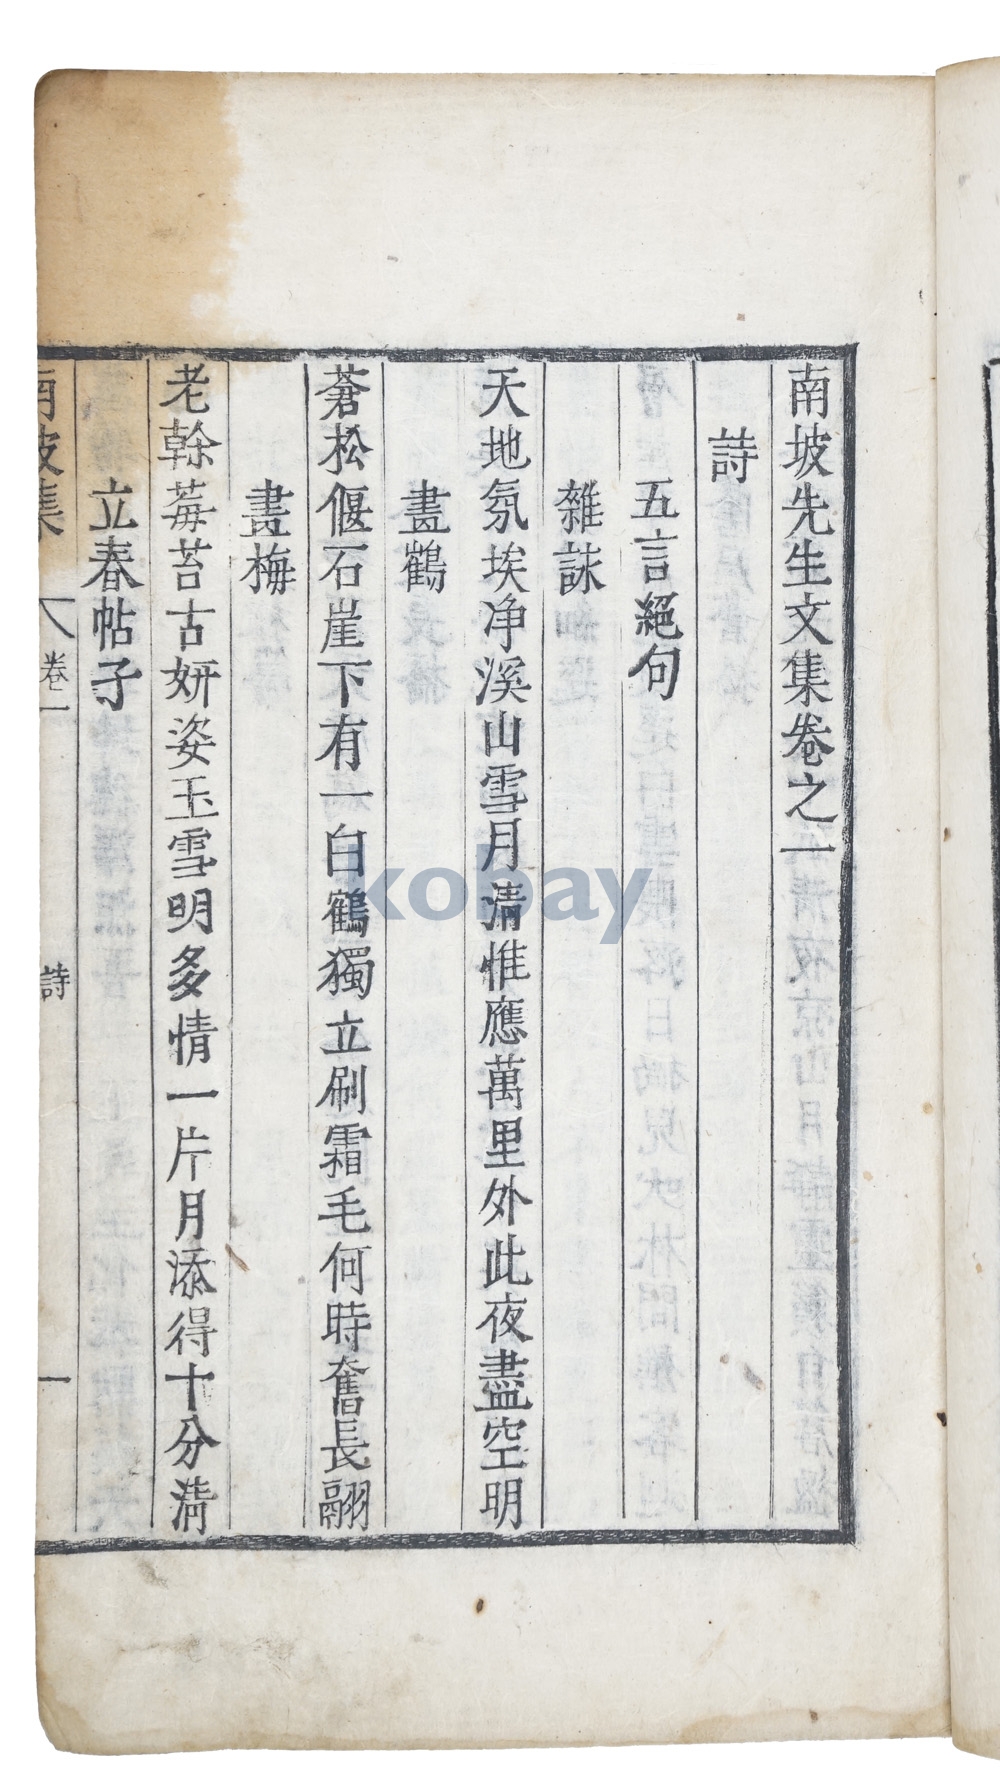 南坡先生文集卷之一
詩
五言絕句
雜詠
天地氛埃净溪山雪月清惟應萬里外此夜盡空明
畫鶴
蒼松偃石崖下有一白鶴獨立刷霜毛何時奮長翮
畫梅
老榦莓苔古妍姿玉雪明多情一片月添得十分清
立春帖子
南坡集
卷一
詩
一
kobay